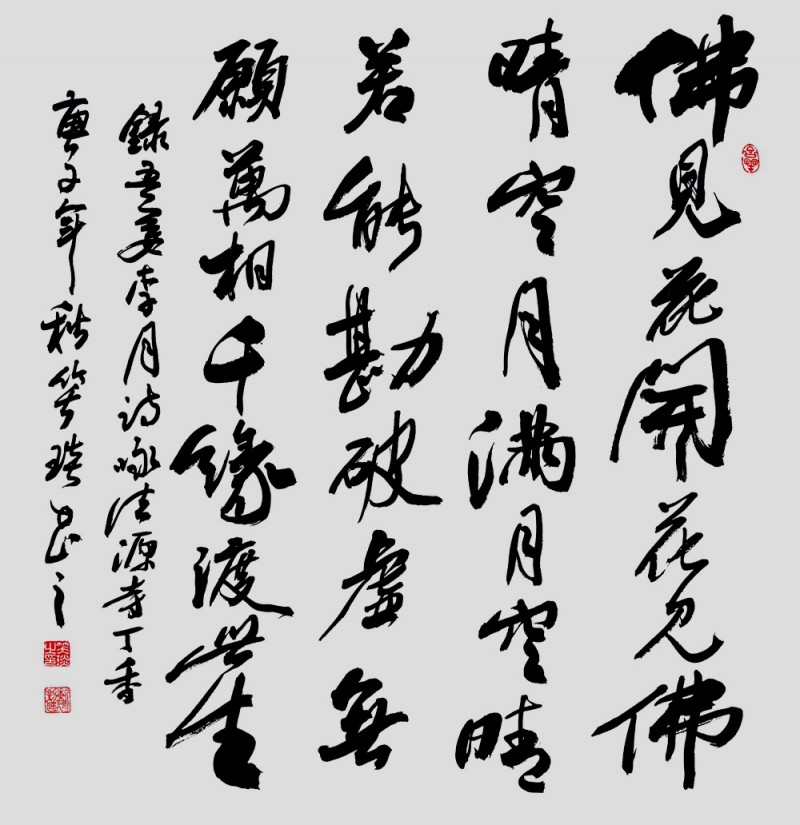 佛見花開花見佛
晴空月滿月空晴
若能勘破虛無
願萬相千緣渡此生
錄吾妻李月詩咏法源寺丁香
庚子年秋